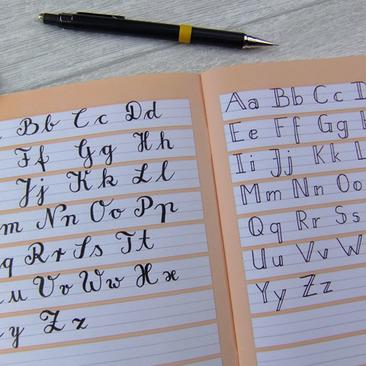 Bb Cc Dd
Ff Gg Hh
Jj Kk Ll
m Nn Oo Pp
q Rr Ss Tt
u Vv Ww Xx
y Zz
Aa Bb Cc D
Ee Ff Gg
Ii Jj Kk L
Mm Nn Oo
Qq Rr Ss
Uu Vv W
Yy Zz